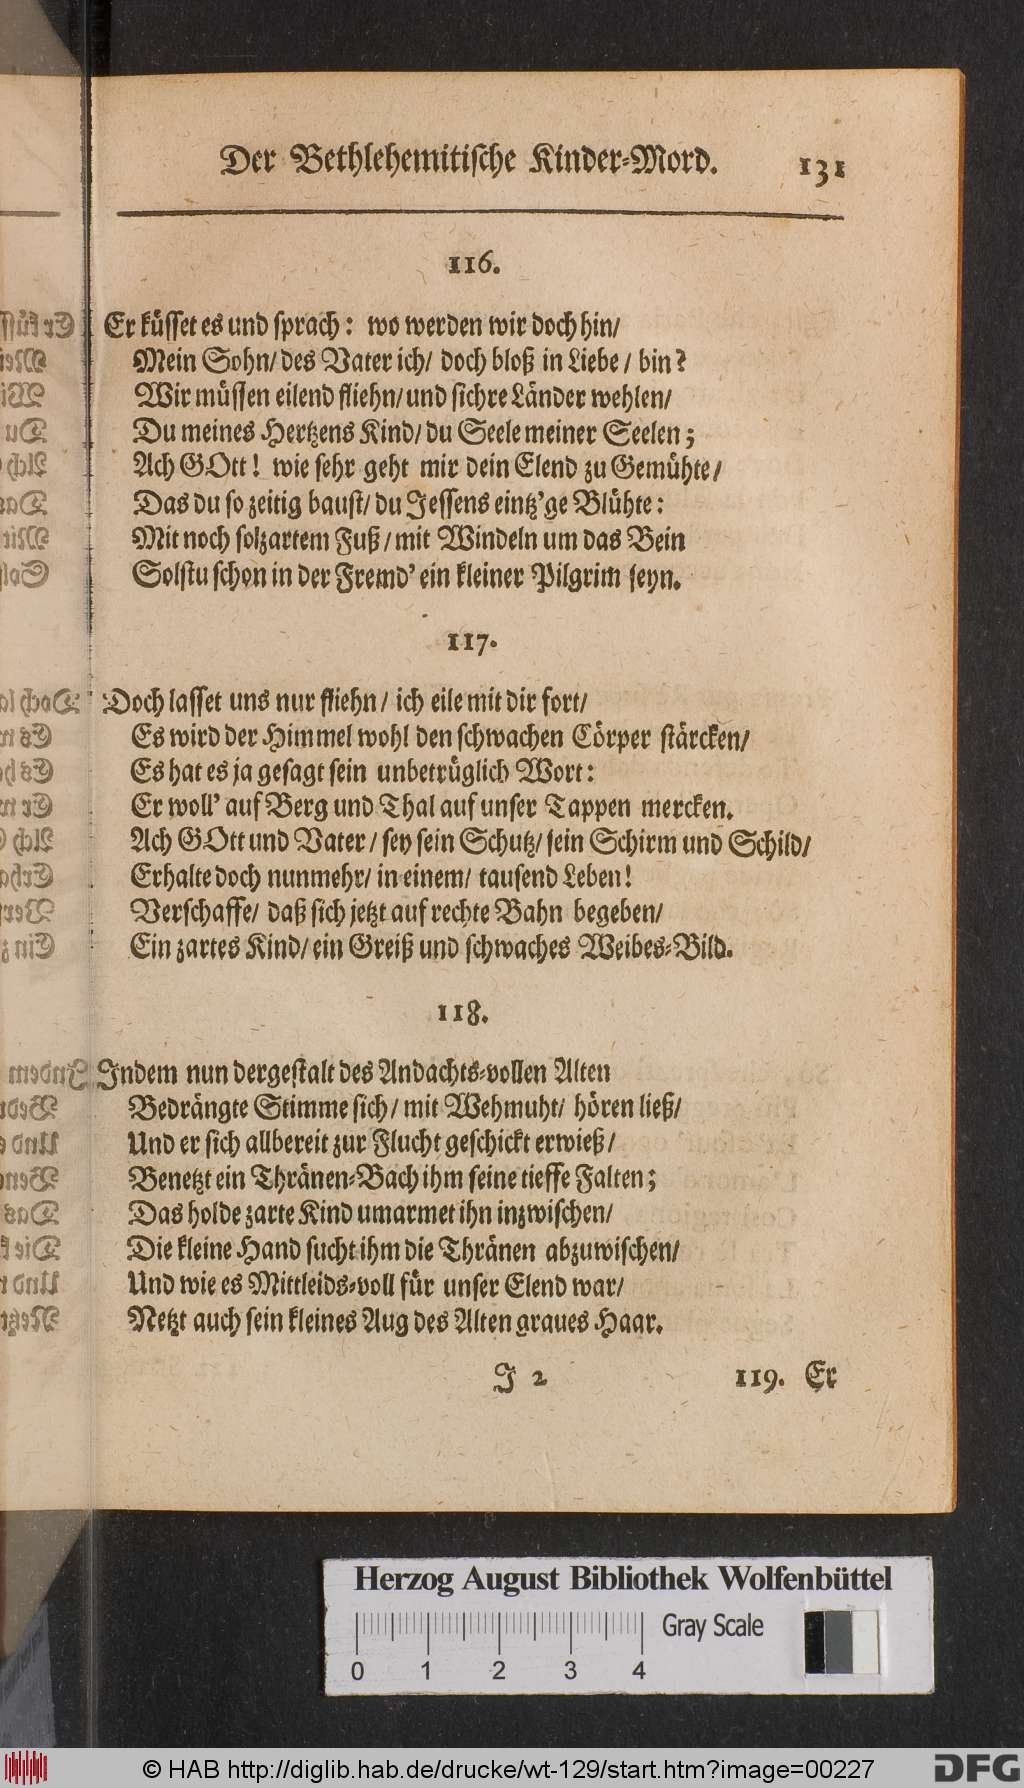 Der Bethlehemitische Kinder-Mord. 131
116.
Er küsset es und sprach: wo werden wir doch hin/
Mein Sohn/ des Vater ich/ doch bloß in Liebe/ bin?
Wir müssen eilend fliehn/ und sichre Länder wehlen/
Du meines Hertzens Kind/ du Seele meiner Seelen;
Ach GOtt! wie sehr geht mir dein Elend zu Gemühte/
Das du so zeitig baust/ du Jessens eintz'ge Blühte:
Mit noch solzartem Fuß/ mit Windeln um das Bein
Solstu schon in der Fremd' ein kleiner Pilgrim seyn.
117.
Doch lasset uns nur fliehn/ ich eile mit dir fort/
Es wird der Himmel wohl den schwachen Cörper stärcken/
Es hat es ja gesagt sein unbetrüglich Wort:
Er woll' auf Berg und Thal auf unser Tappen mercken.
Ach GOtt und Vater/ sey sein Schutz/ sein Schirm und Schild/
Erhalte doch nunmehr/ in einem/ tausend Leben!
Verschaffe/ daß sich jetzt auf rechte Bahn begeben/
Ein zartes Kind/ ein Greiß und schwaches Weibes-Bild.
118.
Indem nun dergestalt des Andachts-vollen Alten
Bedrängte Stimme sich/ mit Wehmuht/ hören ließ/
Und er sich allbereit zur Flucht geschickt erwieß/
Benetzt ein Thränen-Bach ihm seine tieffe Falten;
Das holde zarte Kind umarmet ihn inzwischen/
Die kleine Hand sucht ihm die Thränen abzuwischen/
Und wie es Mittleids-voll für unser Elend war/
Netzt auch sein kleines Aug des Alten graues Haar.
J 2 119. Er
Herzog August Bibliothek Wolfenbüttel
Gray Scale
0 1 2 3 4
© HAB http://diglib.hab.de/drucke/wt-129/start.htm?image=00227
DFG